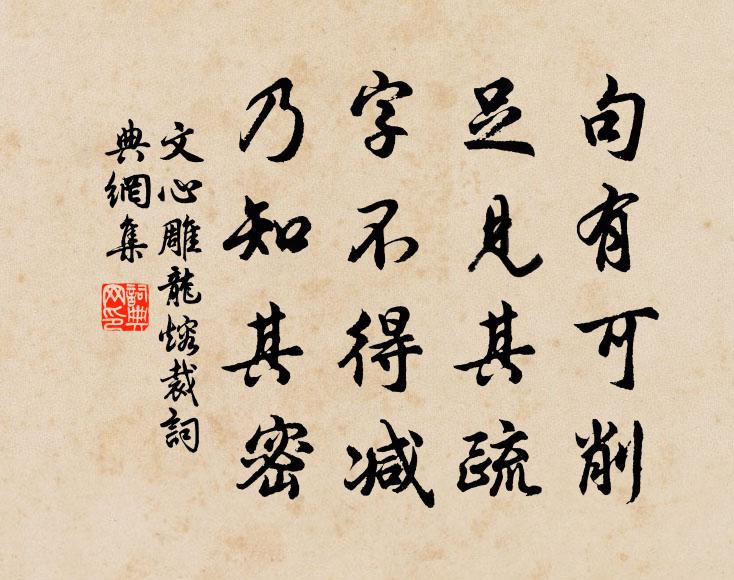 句有可削
足見其疏
字不得减
乃知其密
文心雕龍熔裁詞
典網集
詞典網印